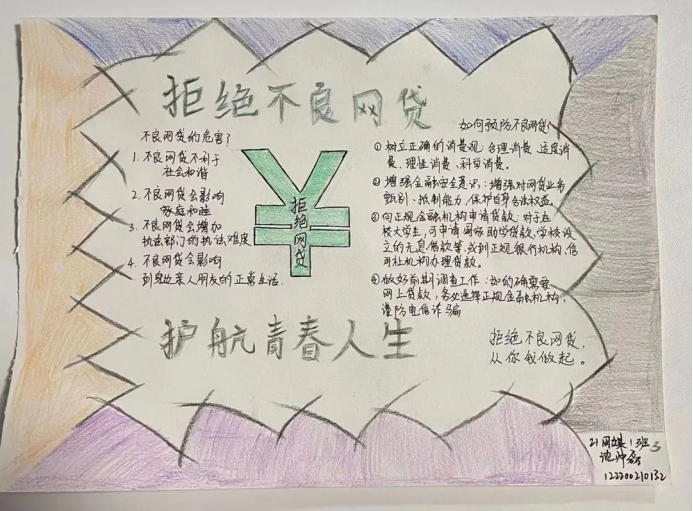 拒绝不良网贷
不良网贷的危害?
1. 不良网贷不利于
社会和谐
2. 不良网贷会影响
家庭和睦
3. 不良网贷会增加
执法部门的执法难度
4. 不良网贷会影响
到身边亲人朋友的正常生活.
拒绝网贷
如何预防不良网贷?
①树立正确的消费观:合理消费、适度消
费、理性消费、科学消费。
②增强金融安全意识:增强对网贷业务
甄别、抵制能力,保护自身合法权益。
③向正规金融机构申请贷款:对于在
校大学生,可申请国家助学贷款、学校设
立的无息借款等,或到正规银行机构、信
用社机构办理贷款。
④做好前期调查工作:如的确需要
网上贷款,务必选择正规金融机构,
谨防电信诈骗
护航青春人生
拒绝不良网贷,
从你我做起。
21网媒1班
3
122200210132